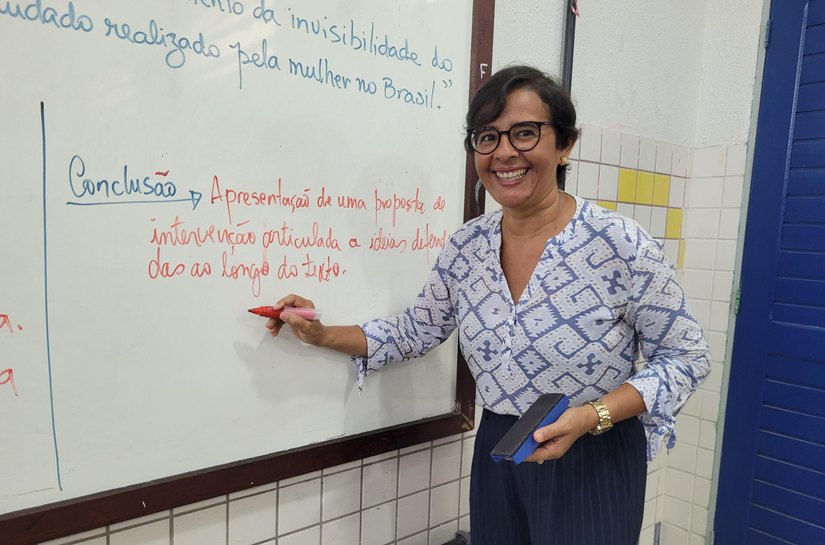 da invisibilidade do
realizado pela mulher no Brasil.”
Conclusão → Apresentação de uma proposta de
intervenção articulada a ideias defendi
das ao longo do texto.
a.
a